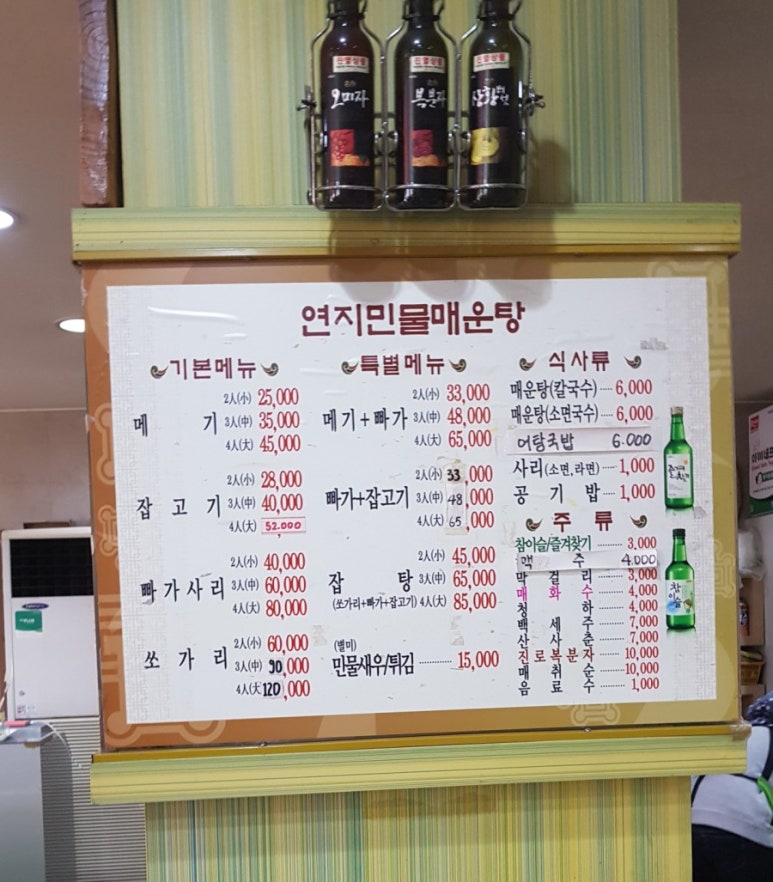 진열상품
진열상품
진열상품
오미자
복분자
상황버섯
연지민물매운탕
기본메뉴
메기
2人(小) 25,000
3人(中) 35,000
4人(大) 45,000
잡고기
2人(小) 28,000
3人(中) 40,000
4人(大) 52.000
빠가사리
2人(小) 40,000
3人(中) 60,000
4人(大) 80,000
쏘가리
2人(小) 60,000
3人(中) 90,000
4人(大) 120,000
특별메뉴
메기+빠가
2人(小) 33,000
3人(中) 48,000
4人(大) 65,000
빠가+잡고기
2人(小) 33,000
3人(中) 48,000
4人(大) 65,000
잡탕
2人(小) 45,000
3人(中) 65,000
(쏘가리+빠가+잡고기) 4人(大) 85,000
(별미)
민물새우/튀김 15,000
식사류
매운탕(칼국수) 6,000
매운탕(소면국수) 6,000
어탕국밥 6.000
사리(소면,라면) 1,000
공기밥 1,000
주류
참이슬/즐겨찾기 3,000
맥주 4.000
막걸리 3,000
매화수 4,000
청하 4,000
백세주 7,000
산사춘 7,000
진로복분자 10,000
매취순 10,000
음료수 1,000
참이슬